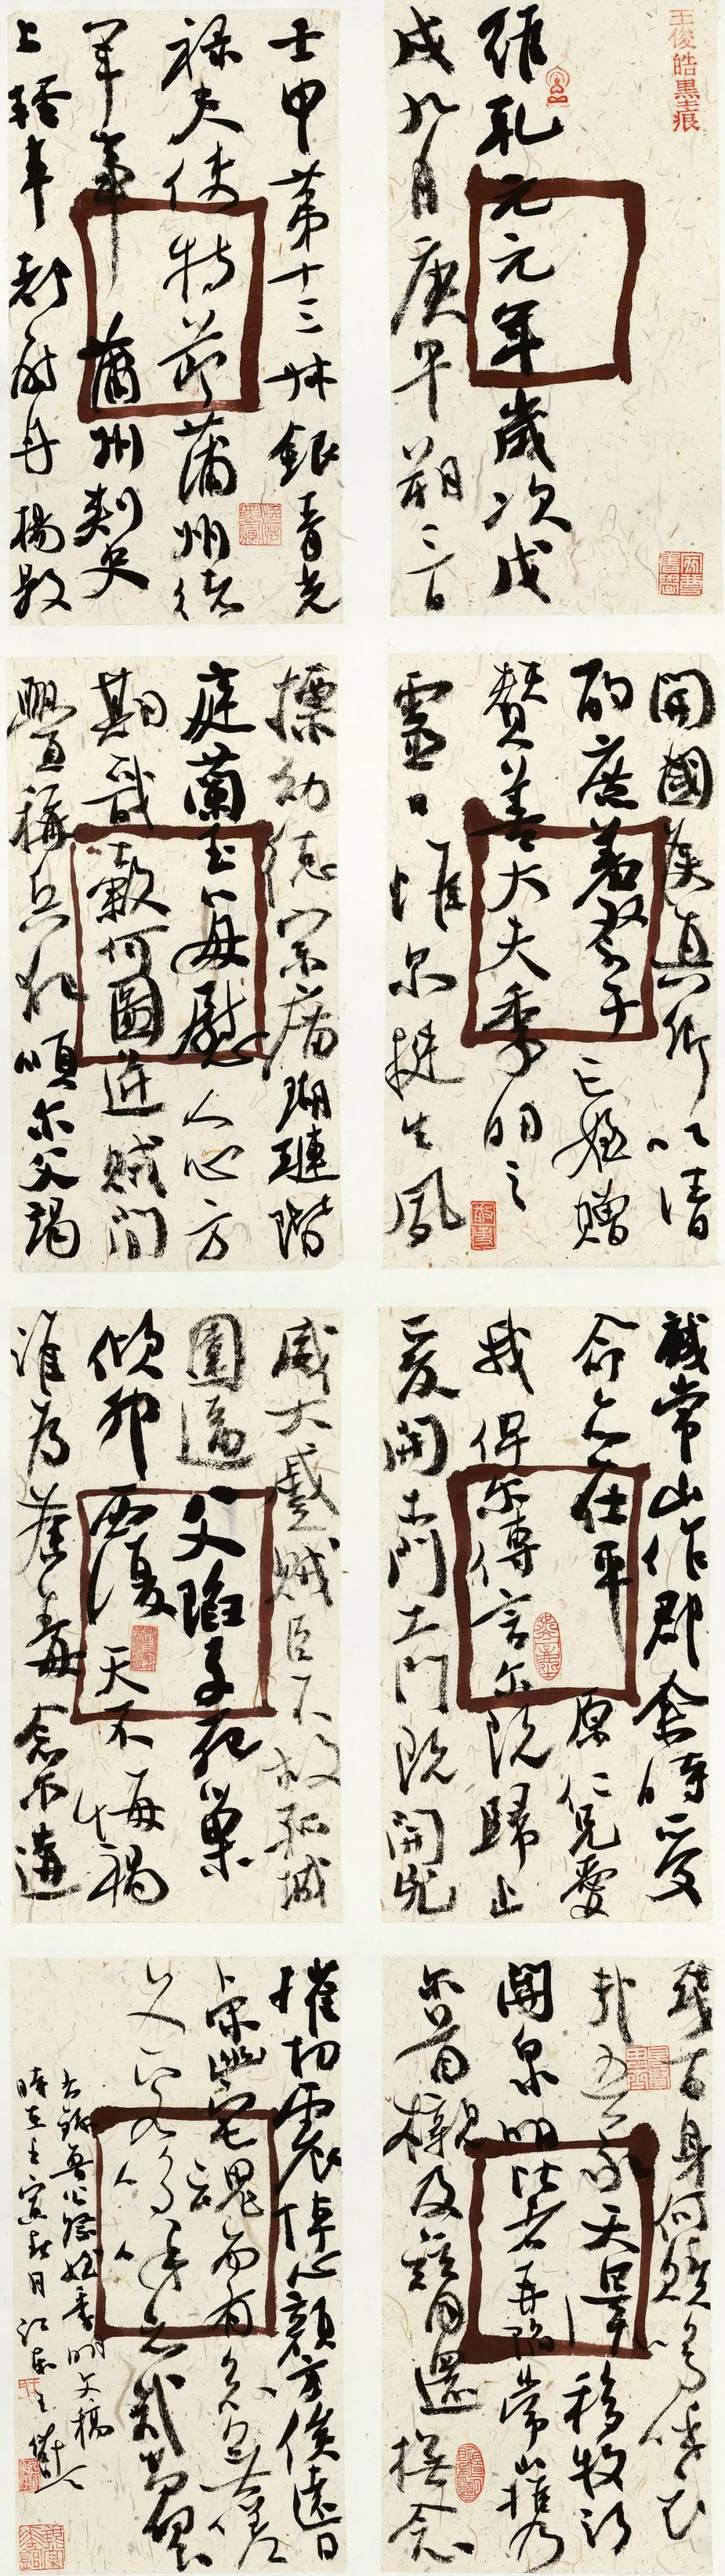 王俊皓墨痕
維乾元元年歲次戊
戌九月庚午朔三日
壬申第十三叔銀青光
祿夫使持節蒲州諸
軍事蒲州刺史
上輕車都尉丹楊縣
開國侯真卿以清
酌庶羞祭于亡姪贈
贊善大夫季明之
靈曰惟爾挺生夙
摽幼德宗廟瑚璉階
庭蘭玉每慰人心方
期戩穀何圖逆賊間
釁稱兵犯順爾父竭
誠常山作郡余時受
命亦在平原仁兄愛
我俾爾傳言爾既歸止
爰開土門土門既開兇
威大蹙賊臣不救孤城
圍逼父陷子死巢
傾卵覆天不悔禍
誰為荼毒念爾遘
殘百身何贖嗚呼哀
哉吾承天澤移牧河
關泉明比者再陷常山攜
爾首櫬及茲同還撫念
摧切震悼心顏方俟遠日
卜爾宅魂而有知無嗟
久客嗚呼哀哉尚饗
右錄魯公祭姪季明文稿
時在壬寅秋月